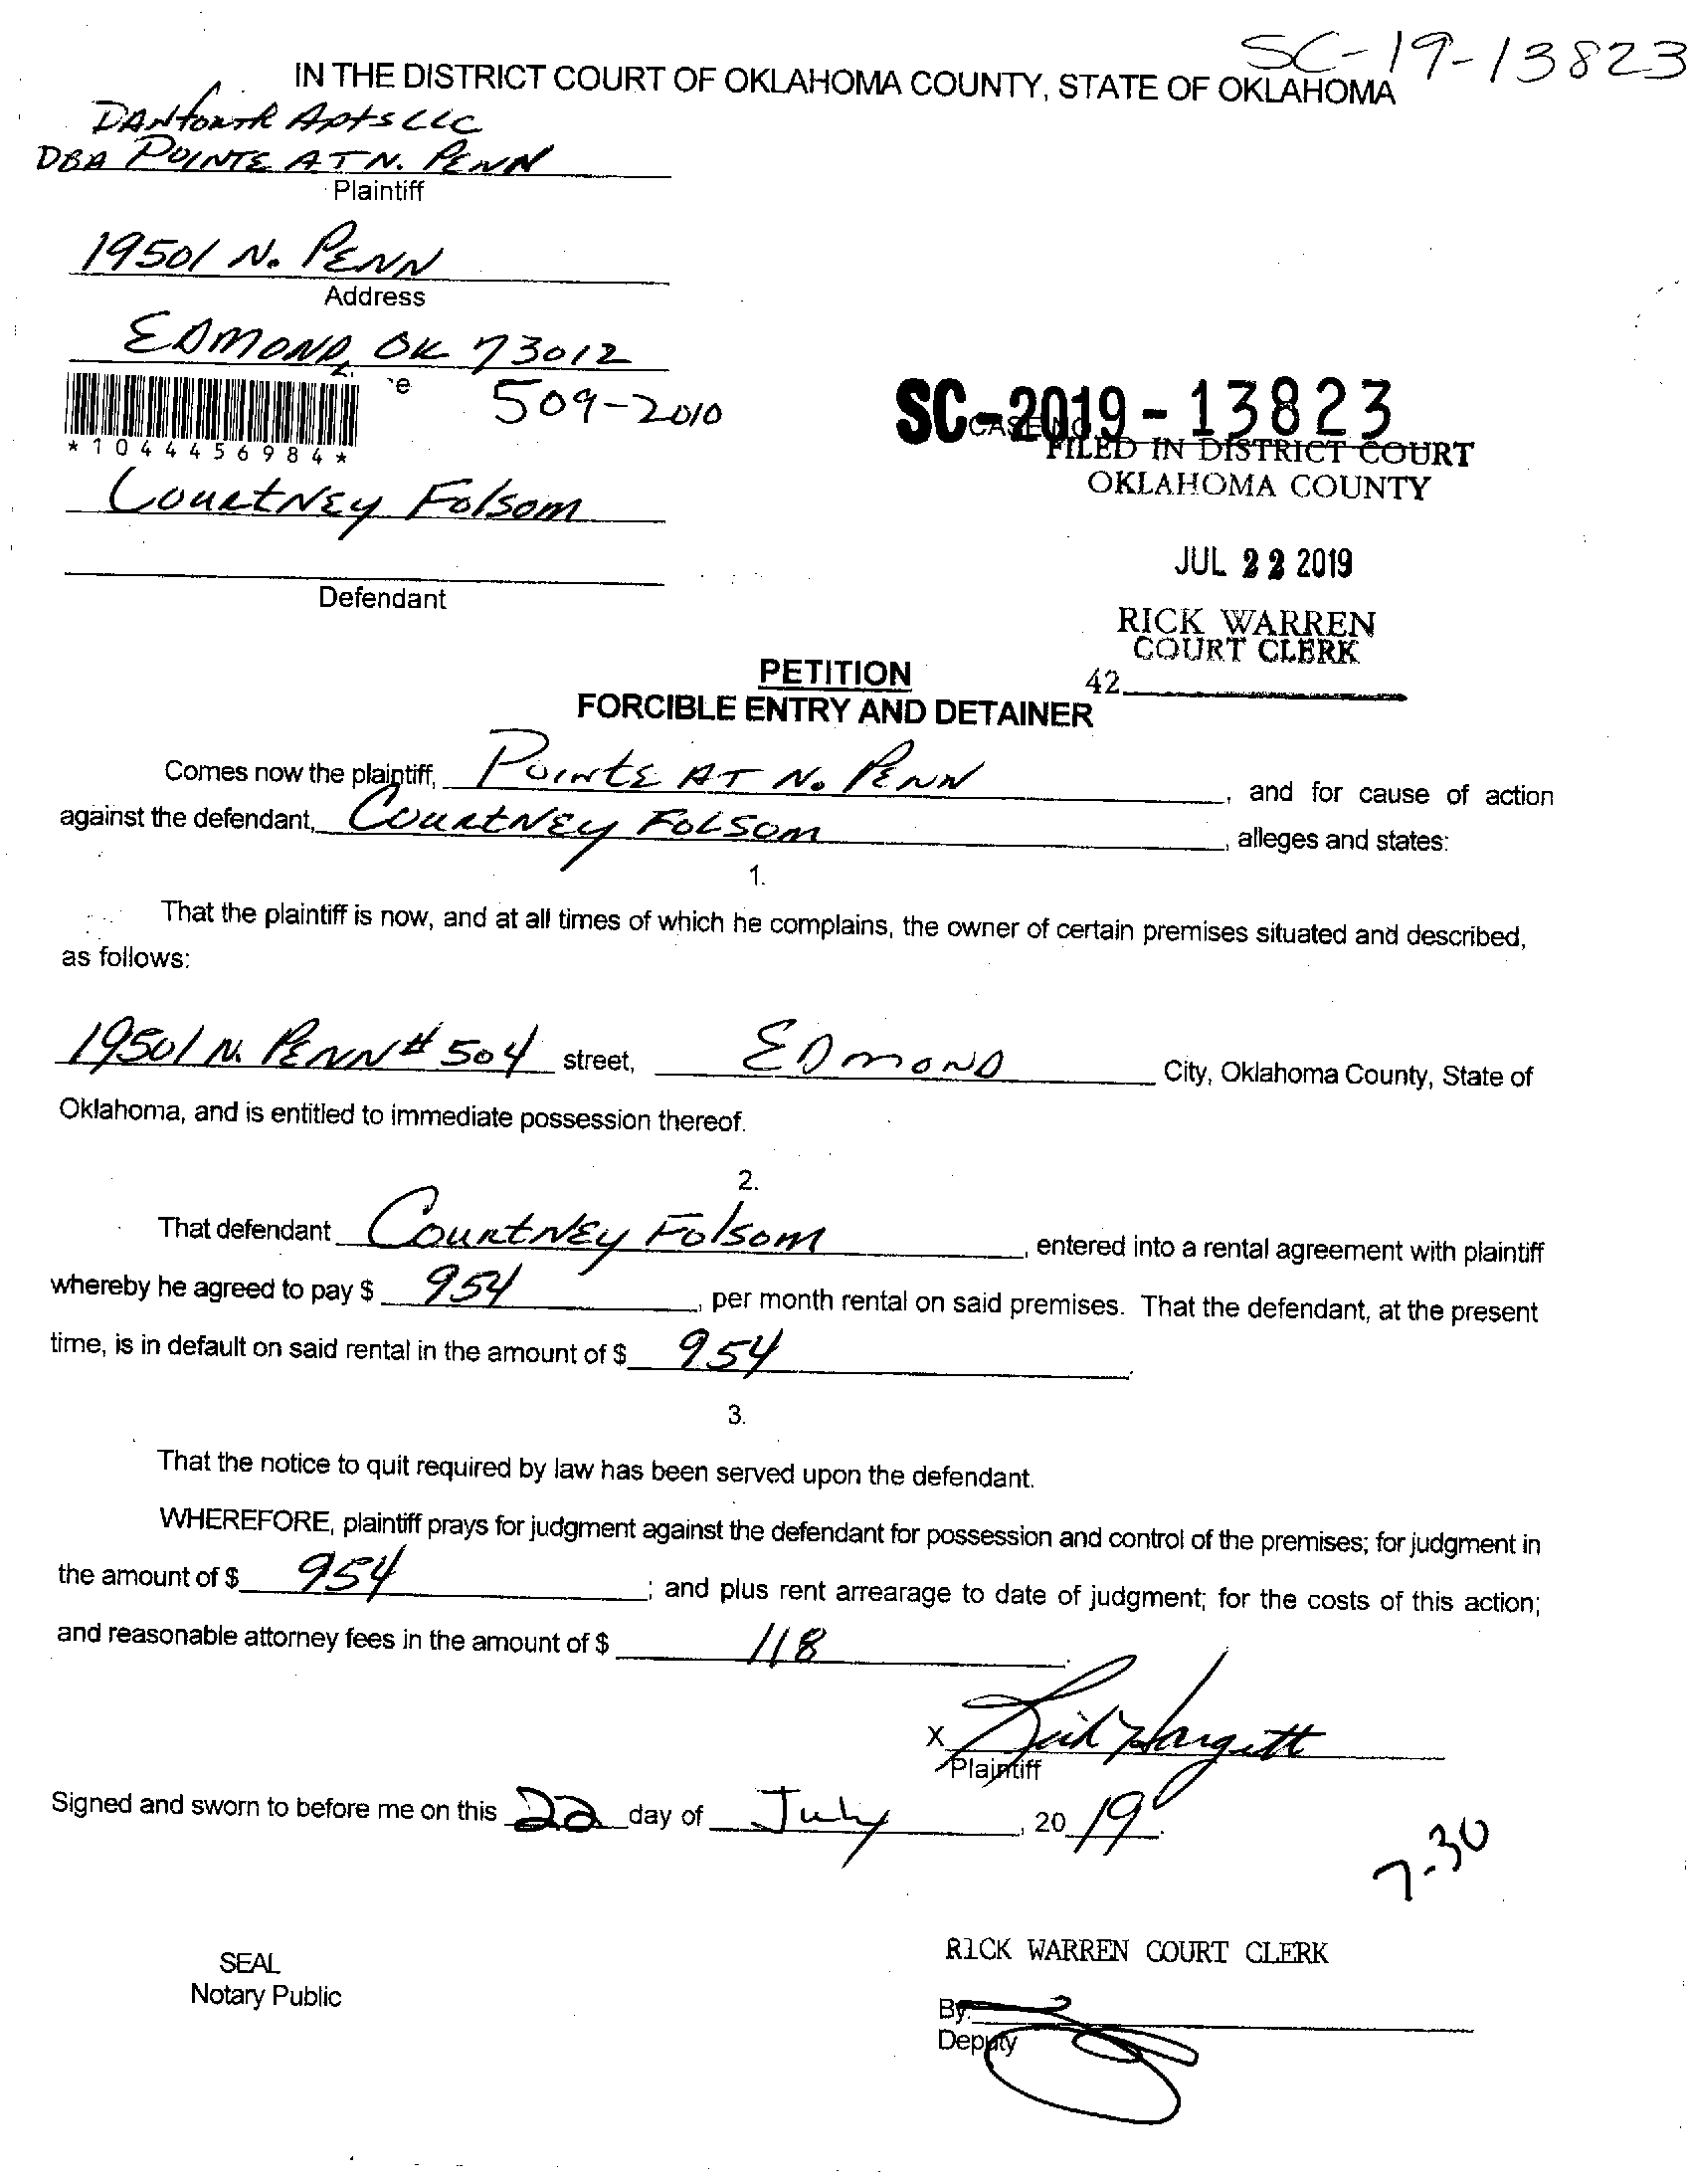 SC-19-13823
IN THE DISTRICT COURT OF OKLAHOMA COUNTY, STATE OF OKLAHOMA
DANforth Apts LLC
DBA POINTE AT N. PENN
Plaintiff
19501 N. PENN
Address
EDMOND, OK 73012
509-2010
*1044456984*
SC-2019-13823
CASE NO.
FILED IN DISTRICT COURT
OKLAHOMA COUNTY
Courtney Folsom
JUL 22 2019
Defendant
RICK WARREN
COURT CLERK
42
PETITION
FORCIBLE ENTRY AND DETAINER
Comes now the plaintiff, Pointe AT N. PENN, and for cause of action
against the defendant, Courtney Folsom, alleges and states:
1.
That the plaintiff is now, and at all times of which he complains, the owner of certain premises situated and described,
as follows:
19501 N. PENN # 504 street, EDMOND City, Oklahoma County, State of
Oklahoma, and is entitled to immediate possession thereof.
2.
That defendant Courtney Folsom, entered into a rental agreement with plaintiff
whereby he agreed to pay $ 954, per month rental on said premises. That the defendant, at the present
time, is in default on said rental in the amount of $ 954.
3.
That the notice to quit required by law has been served upon the defendant.
WHEREFORE, plaintiff prays for judgment against the defendant for possession and control of the premises; for judgment in
the amount of $ 954; and plus rent arrearage to date of judgment; for the costs of this action;
and reasonable attorney fees in the amount of $ 118.
X Hargett
Plaintiff
Signed and sworn to before me on this 22 day of July, 20 19.
7-30
RICK WARREN COURT CLERK
SEAL
Notary Public
By:
Deputy